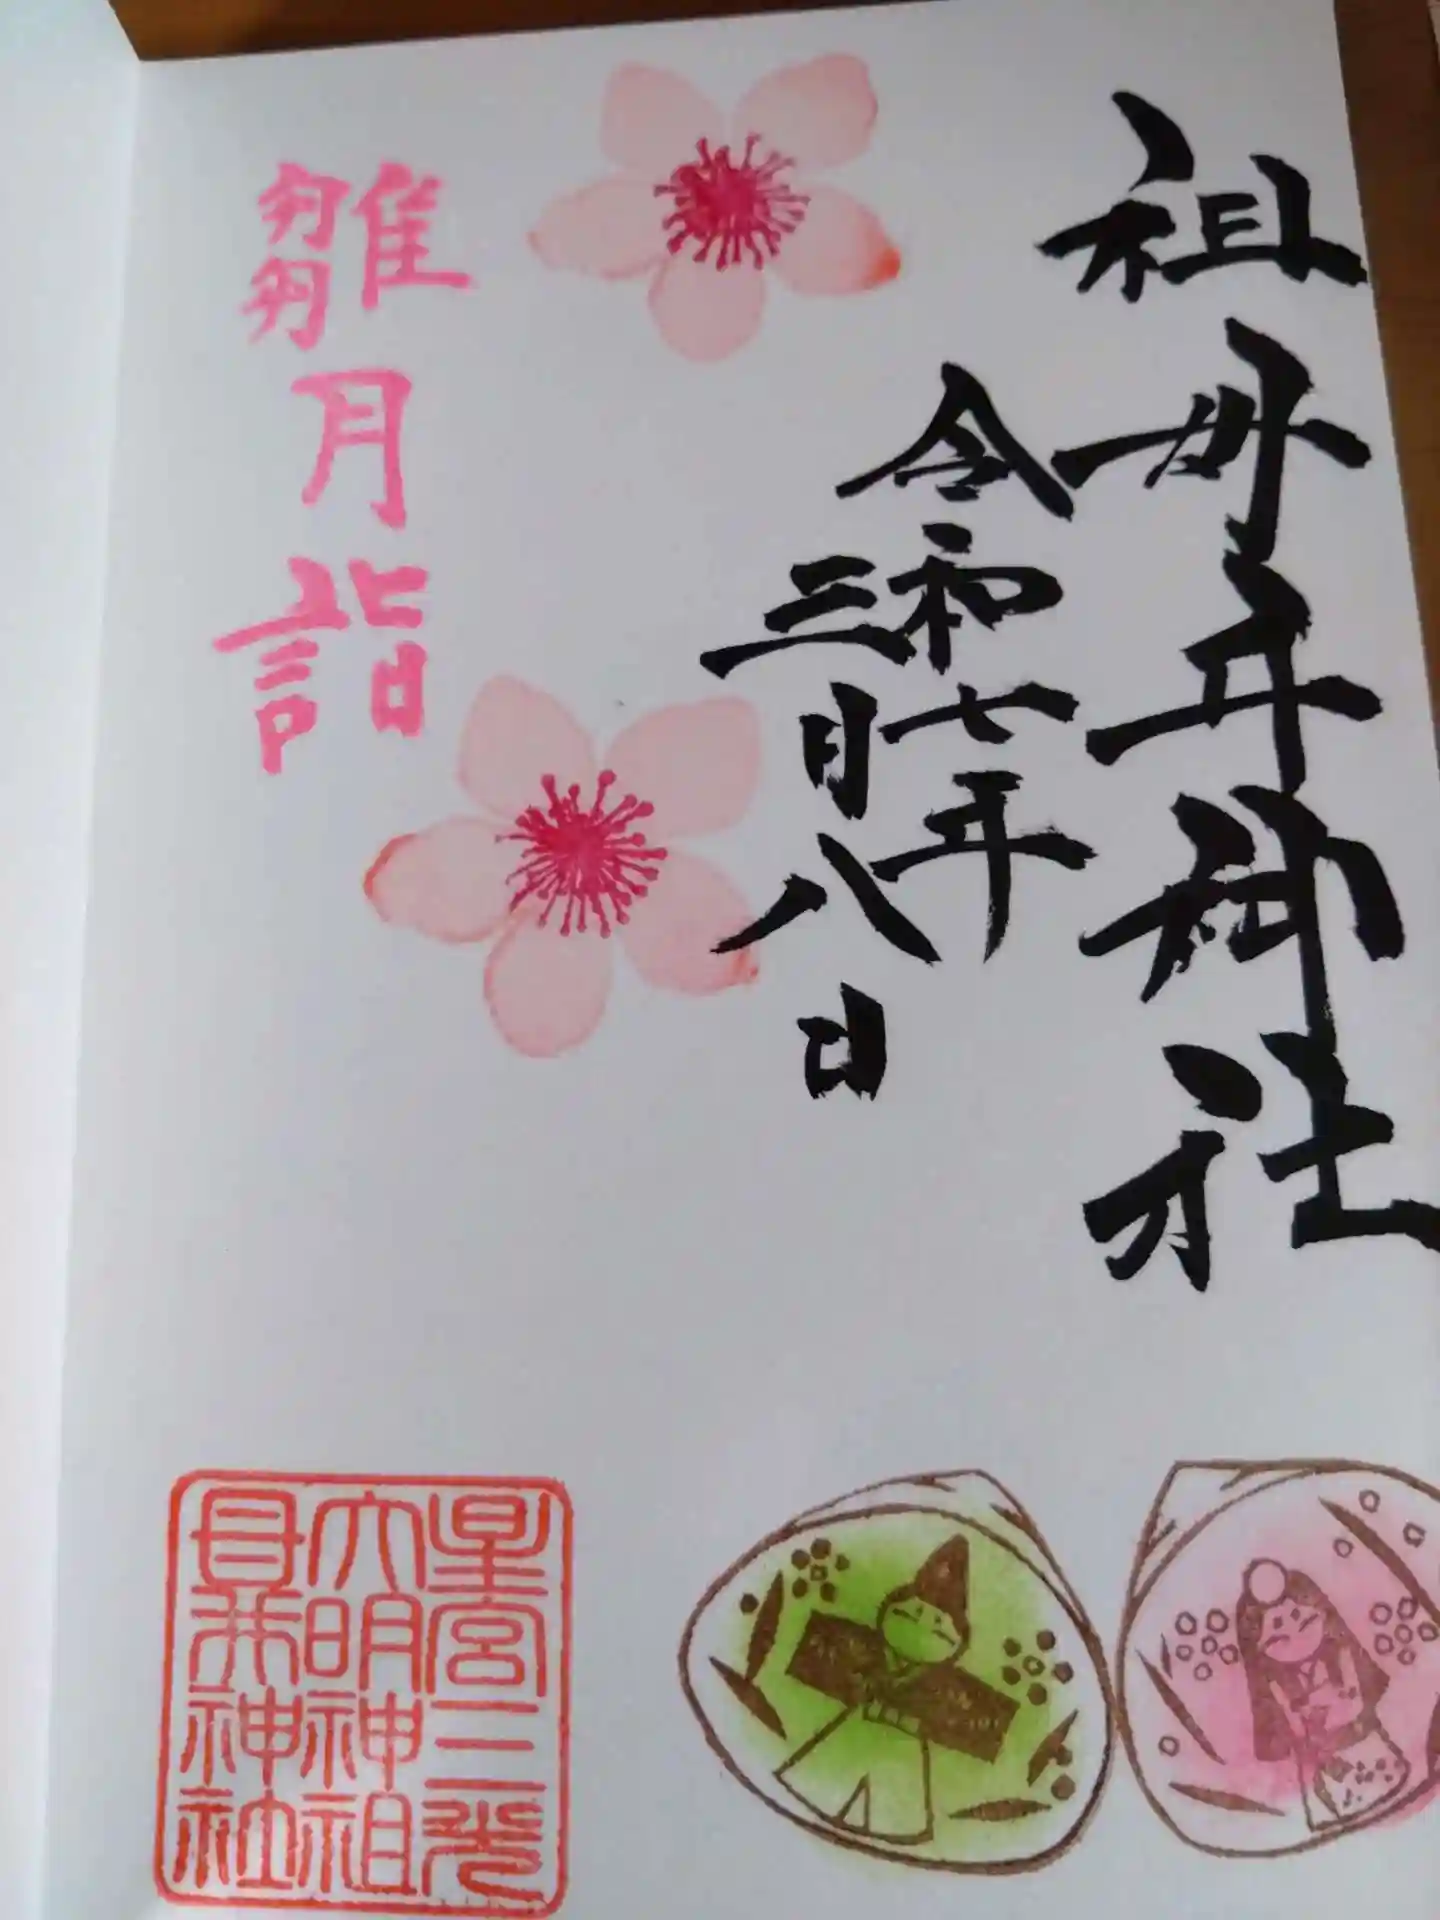 祖母井神社
令和七年
三月八日
雛月詣
星宮三光
大明神祖
母井神社